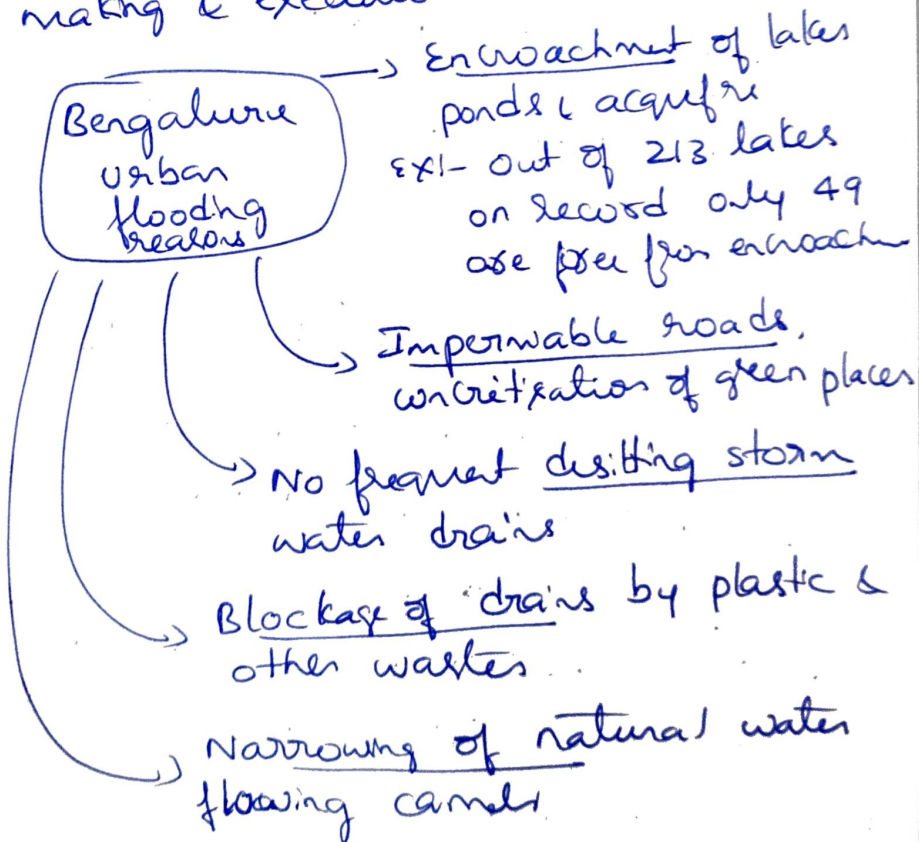 making &
Bengaluru
urban
flooding
reasons
→ Encroachmet of lakes
ponds &
Ex!- Out of 213 lakes
on record only 49
are free from encroach
→ Impermable roads,
concritization of green places
→ No frequent desilting storm
water drains
→ Blockage of drains by plastic &
other wastes
→ Narrowing of natural water
flowing